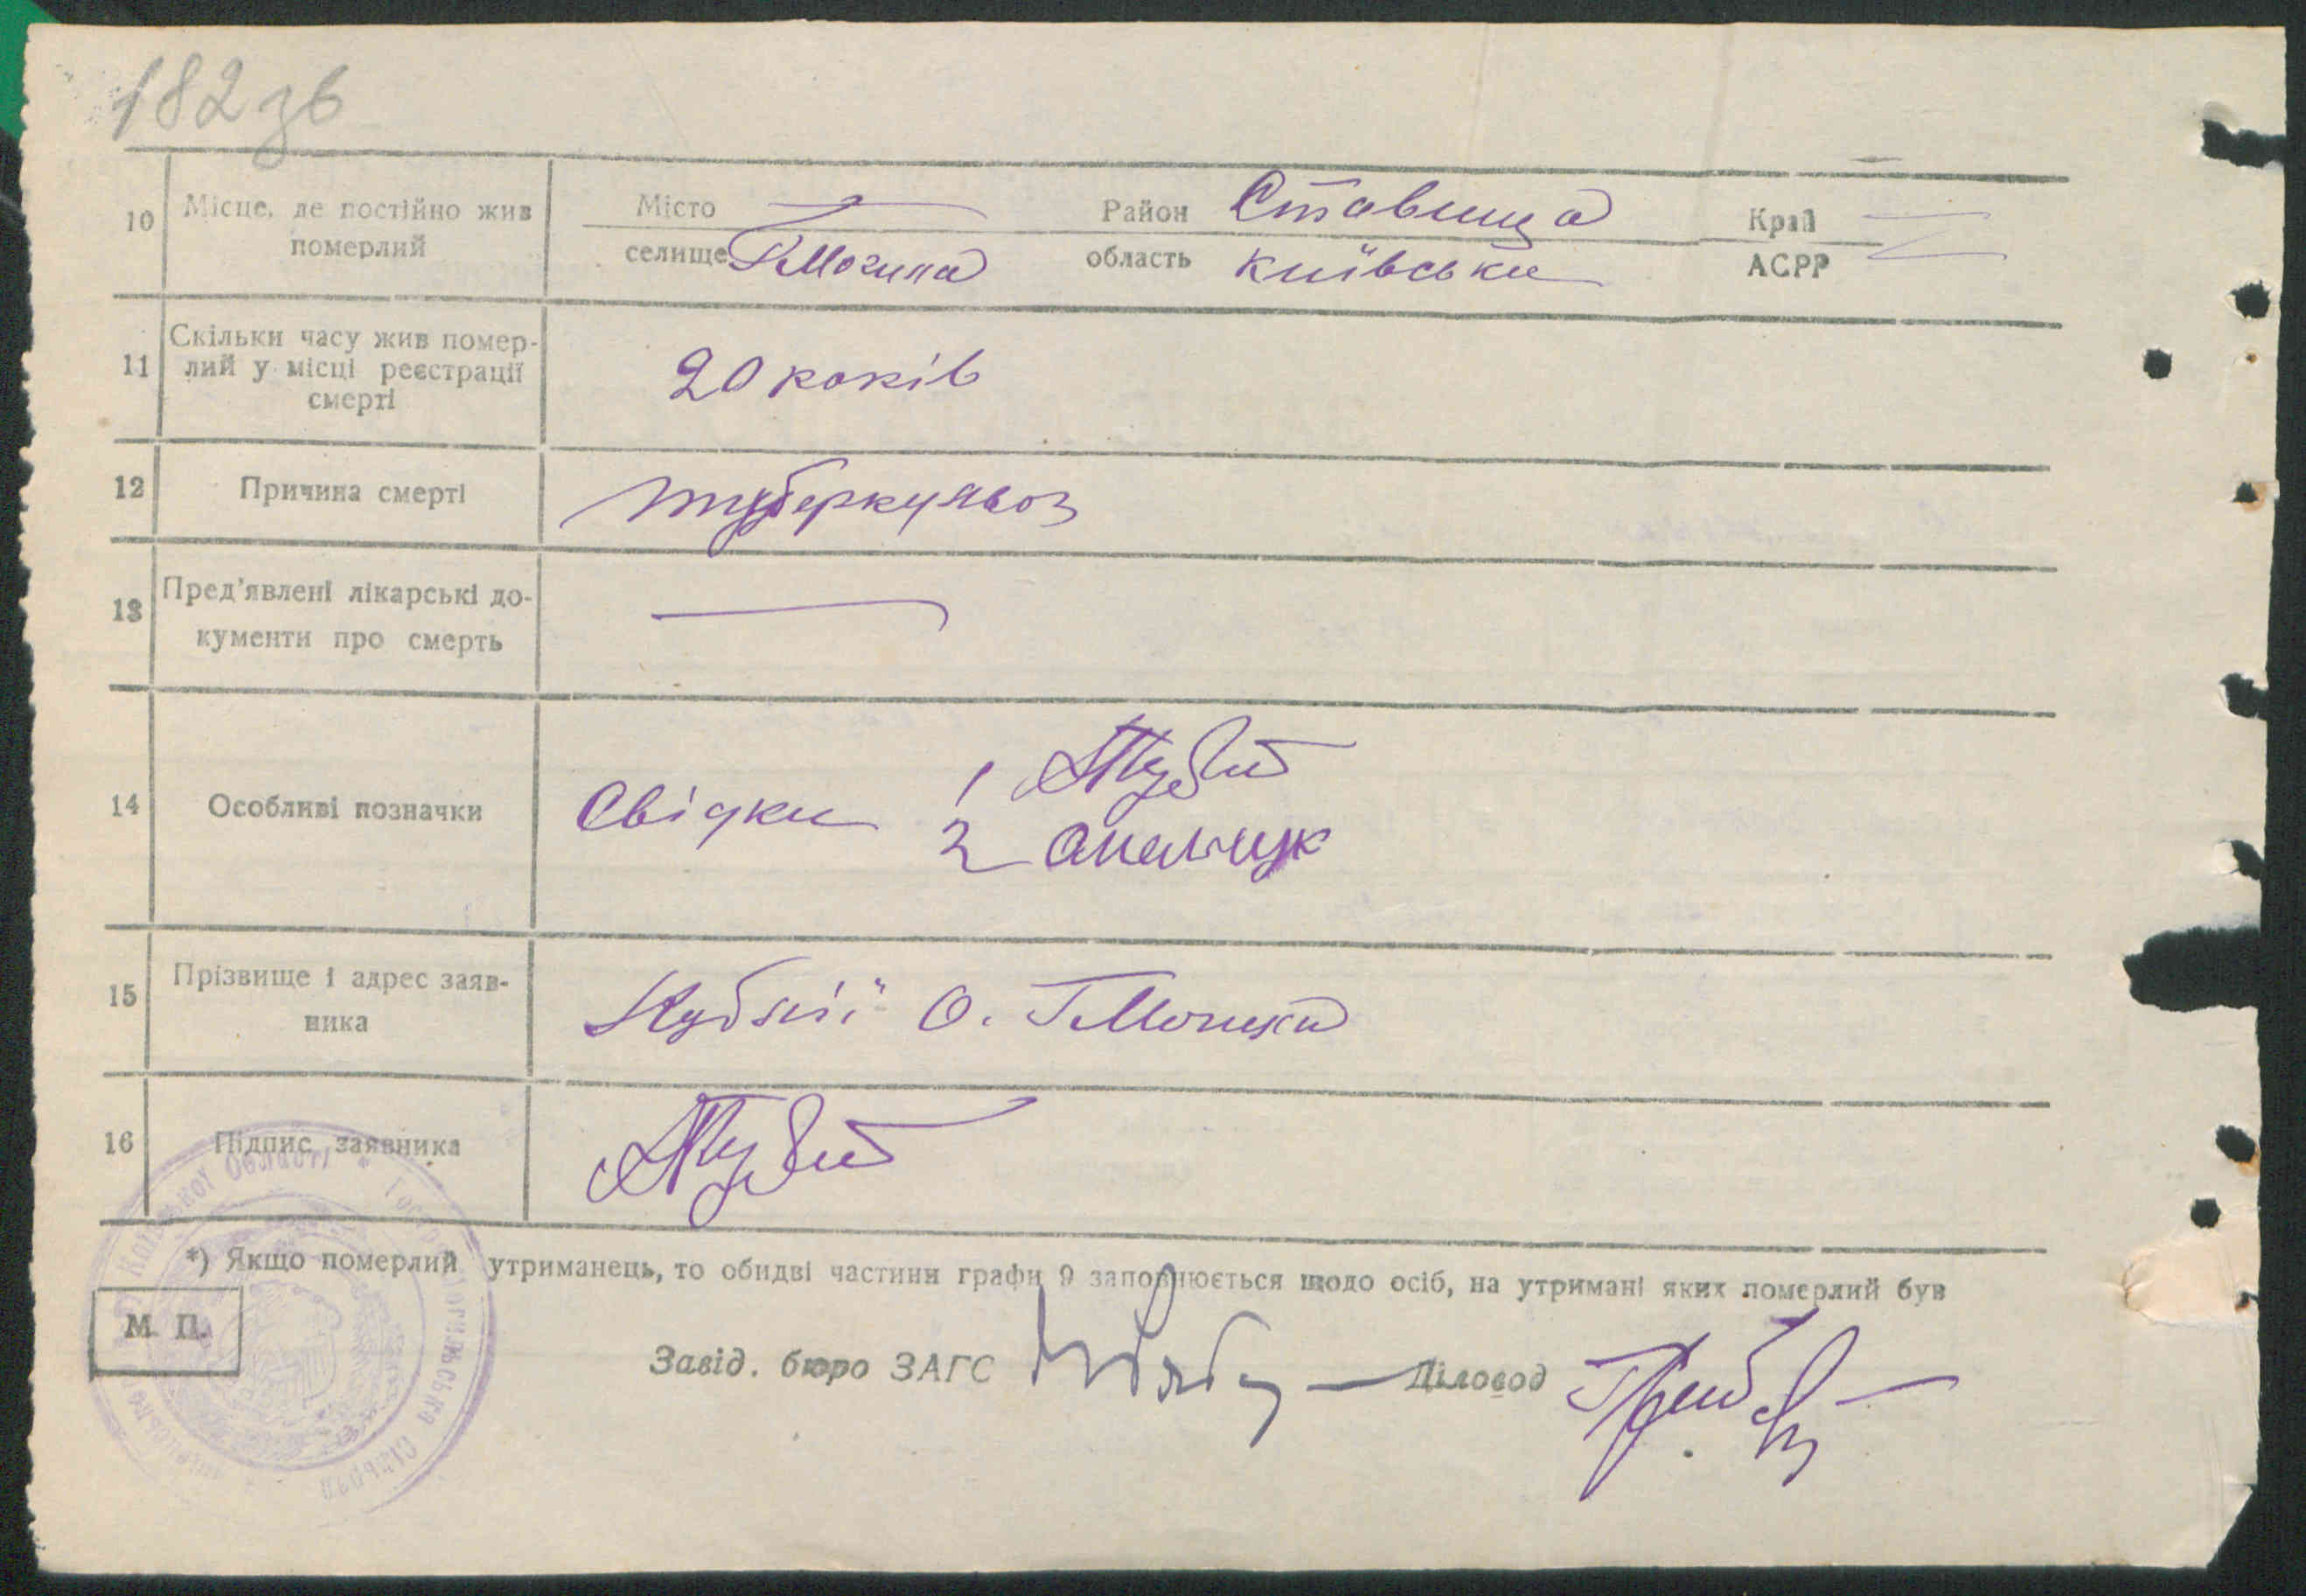 182 зв
10 Місце, де постійно жив померлий
Місто — Район Ставища Край —
селище Г. Могила область київська АСРР
11 Скільки часу жив помер-
лий у місці реєстрації
смерті
20 років
12 Причина смерті туберкульоз
13 Пред'явлені лікарські до-
кументи про смерть
—
14 Особливі позначки
Свідки 1
2
15 Прізвище і адрес заяв-
ника
О. Г. Могила
16 Підпис заявника
*) Якщо померлий утриманець, то обидві частини графи 9 заповнюється щодо осіб, на утримані яких померлий був
М. П.
Завід. бюро ЗАГС Діловод
Київської Області